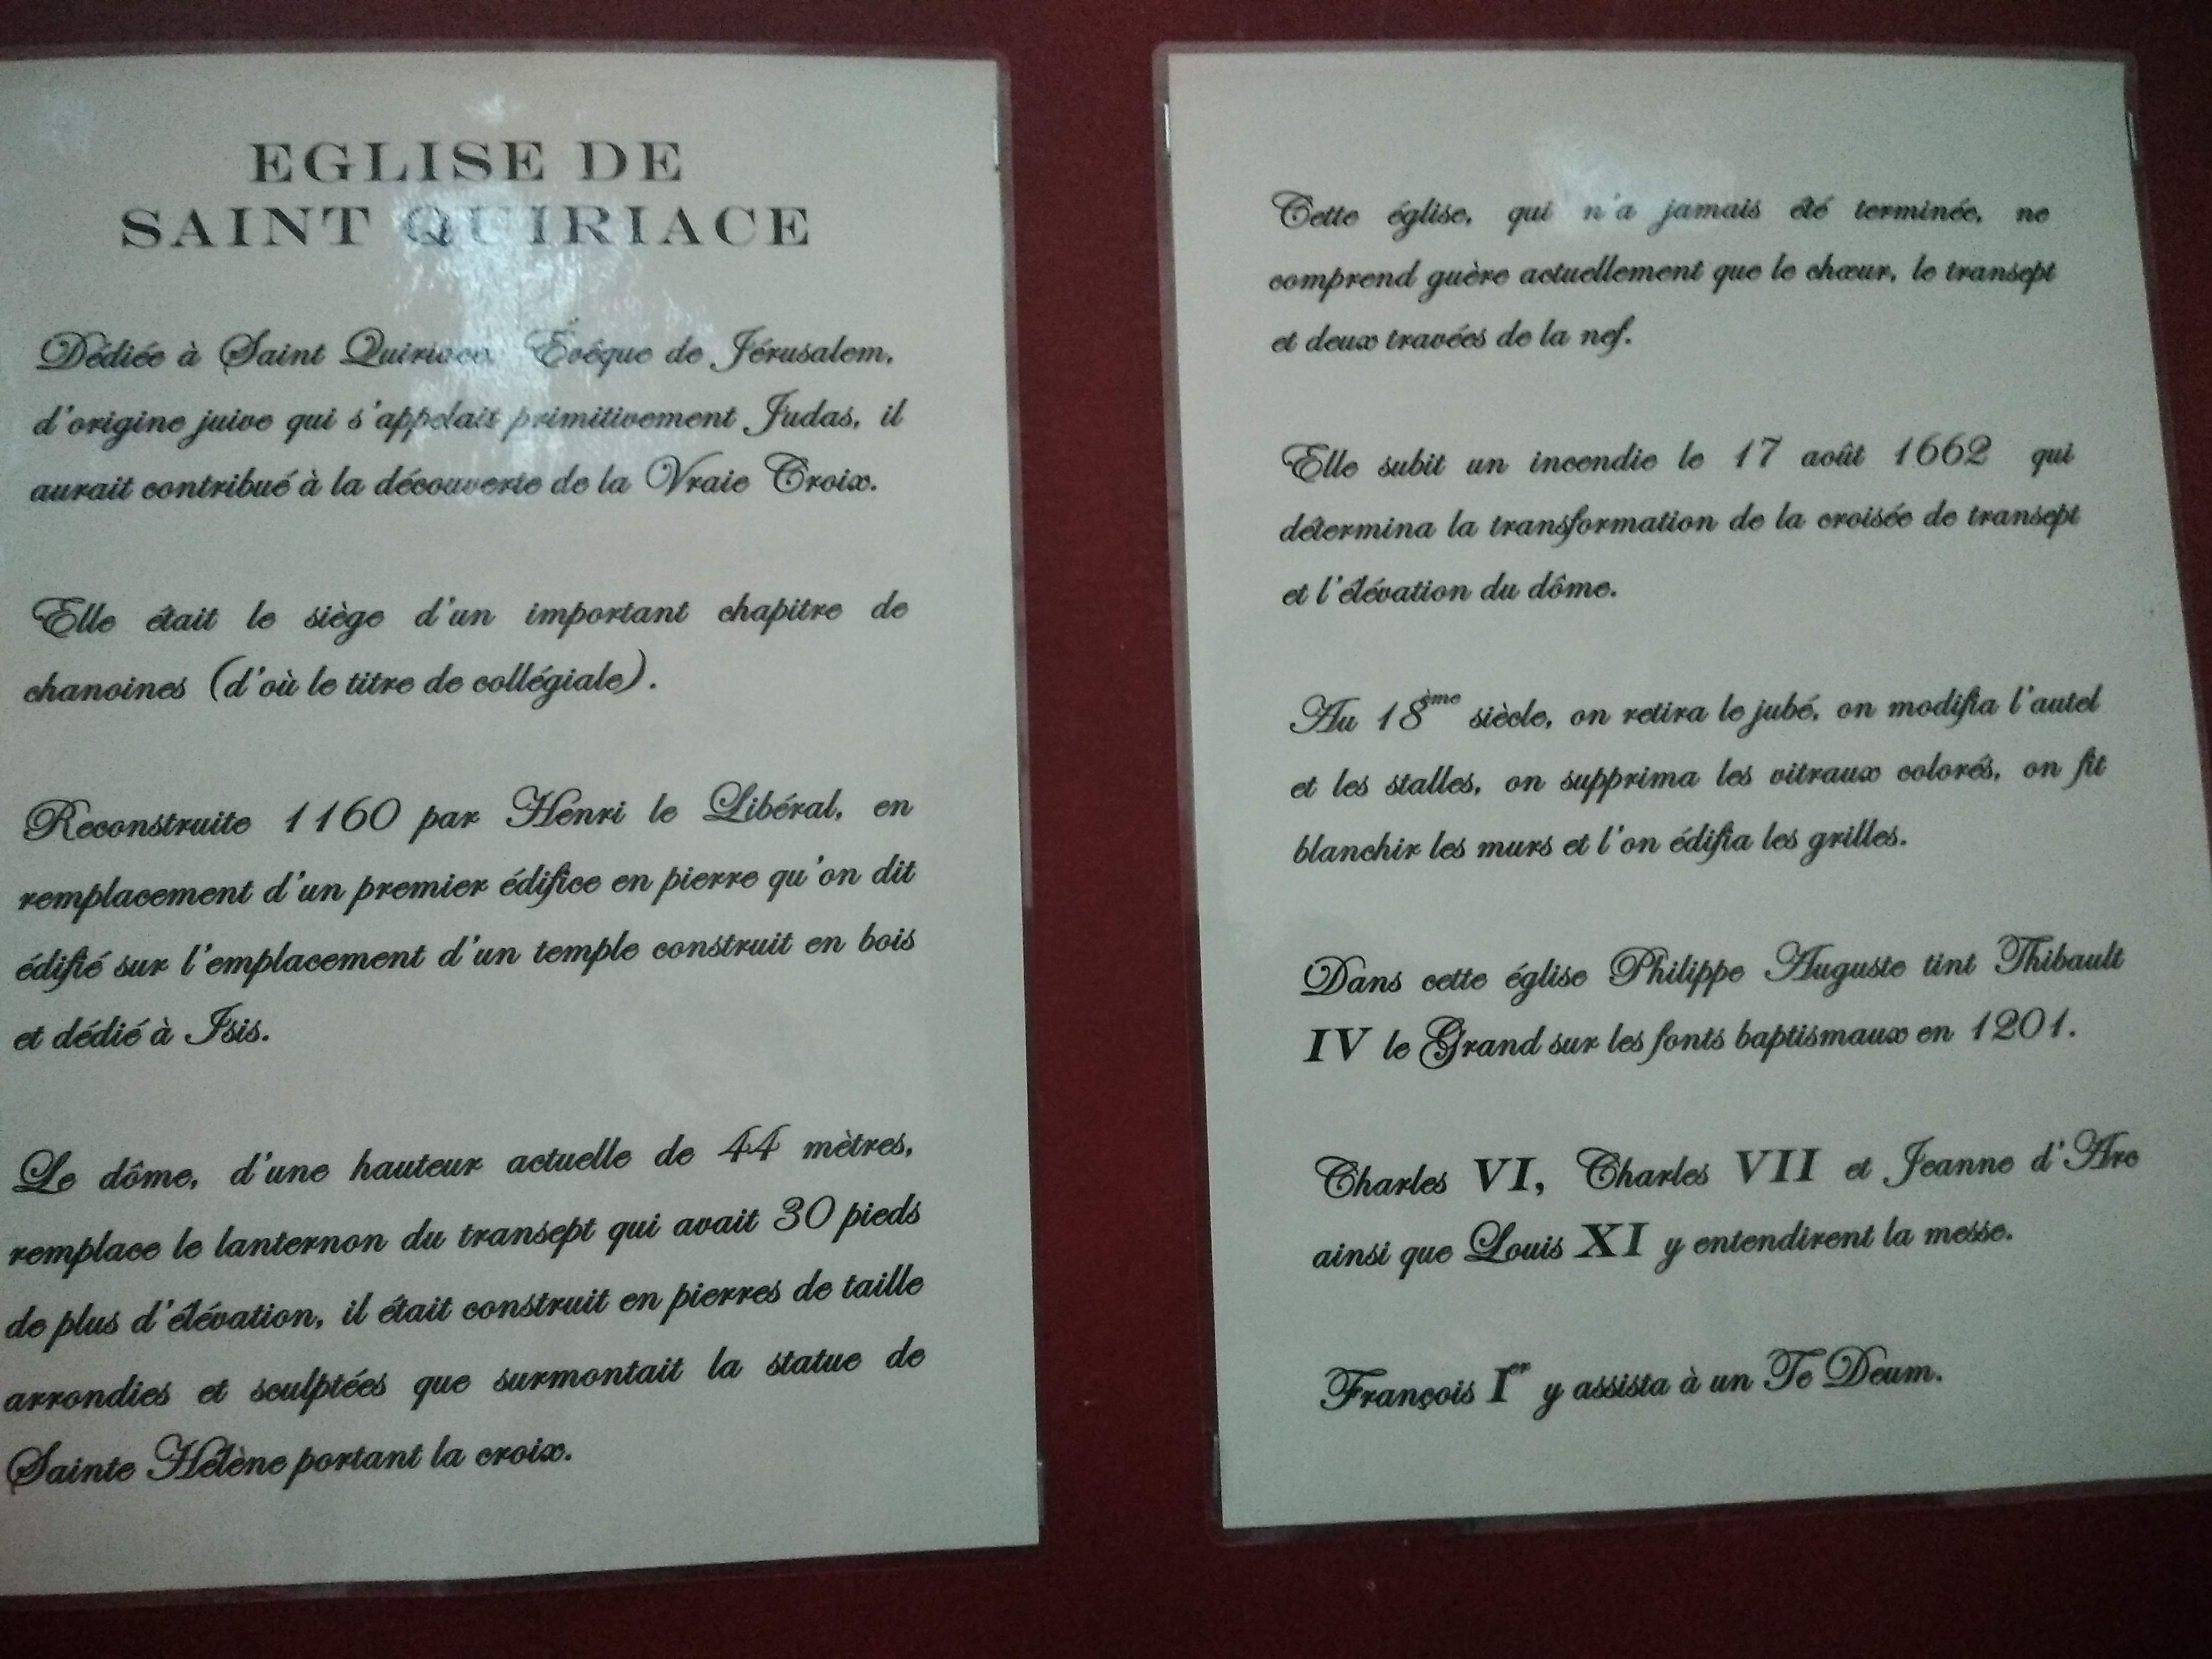 EGLISE DE
SAINT QUIRIACE
Dédiée à Saint Quiriace, Évêque de Jérusalem,
d'origine juive qui s'appelait primitivement Judas, il
aurait contribué à la découverte de la Vraie Croix.
Elle était le siège d'un important chapitre de
chanoines (d'où le titre de collégiale).
Reconstruite 1160 par Henri le Libéral, en
remplacement d'un premier édifice en pierre qu'on dit
édifié sur l'emplacement d'un temple construit en bois
et dédié à Isis.
Le dôme, d'une hauteur actuelle de 44 mètres,
remplace le lanternon du transept qui avait 30 pieds
de plus d'élévation, il était construit en pierres de taille
arrondies et sculptées que surmontait la statue de
Sainte Hélène portant la croix.
Cette église, qui n'a jamais été terminée, ne
comprend guère actuellement que le chœur, le transept
et deux travées de la nef.
Elle subit un incendie le 17 août 1662 qui
détermina la transformation de la croisée de transept
et l'élévation du dôme.
Au 18ème siècle, on retira le jubé, on modifia l'autel
et les stalles, on supprima les vitraux colorés, on fit
blanchir les murs et l'on édifia les grilles.
Dans cette église Philippe Auguste tint Thibault
IV le Grand sur les fonts baptismaux en 1201.
Charles VI, Charles VII et Jeanne d'Arc
ainsi que Louis XI y entendirent la messe.
François Ier y assista à un Te Deum.